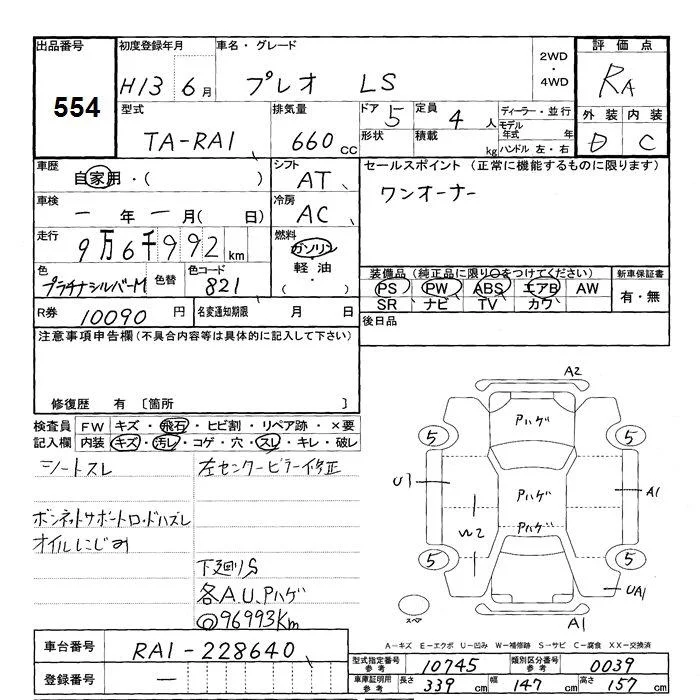 出品番号 554
初度登録年月 H13 6月
車名・グレード プレオ LS
2WD・4WD
評価点 RA
外装 D 内装 C
型式 TA-RA1
排気量 660cc
ドア 5
形状
定員 4人
積載 kg
ディーラー・並行
モデル年式 年
ハンドル 左・右
車歴 自家用・( )
シフト AT
セールスポイント (正常に機能するものに限ります)
ワンオーナー
車検 ー年ー月(日)
冷房 AC
走行 9万6千992km
燃料 ガソリン・軽油・( )
色 プラチナシルバーM
色替
色コード 821
装備品 (純正品に限り○をつけてください)
PS PW ABS エアB AW
SR ナビ TV カワ
新車保証書 有・無
R券 10090円
名変通知期限 月 日
後日品
注意事項申告欄 (不具合内容等は具体的に記入して下さい)
修復歴 有 〔箇所 〕
検査員記入欄
FW キズ・飛石・ヒビ割・リペア跡・×要
内装 キズ・汚レ・コゲ・穴・スレ・キレ・破レ
シートスレ
左センターピラー修正
ボンネットサポートロッドハズレ
オイルにじみ
下廻りS
各A.U.Pハゲ
◎96993Km
A2
Pハゲ
5 5
U1
Pハゲ
A1
W2
Pハゲ
5 5
UA1
スペア
A1
A-キズ E-エクボ U-凹み W-補修跡 S-サビ C-腐食 XX-交換済
車台番号 RA1-228640
登録番号 ー
型式指定番号参考 10745
類別区分番号参考 0039
車庫証明用参考 長さ 339cm 幅 147cm 高さ 157cm